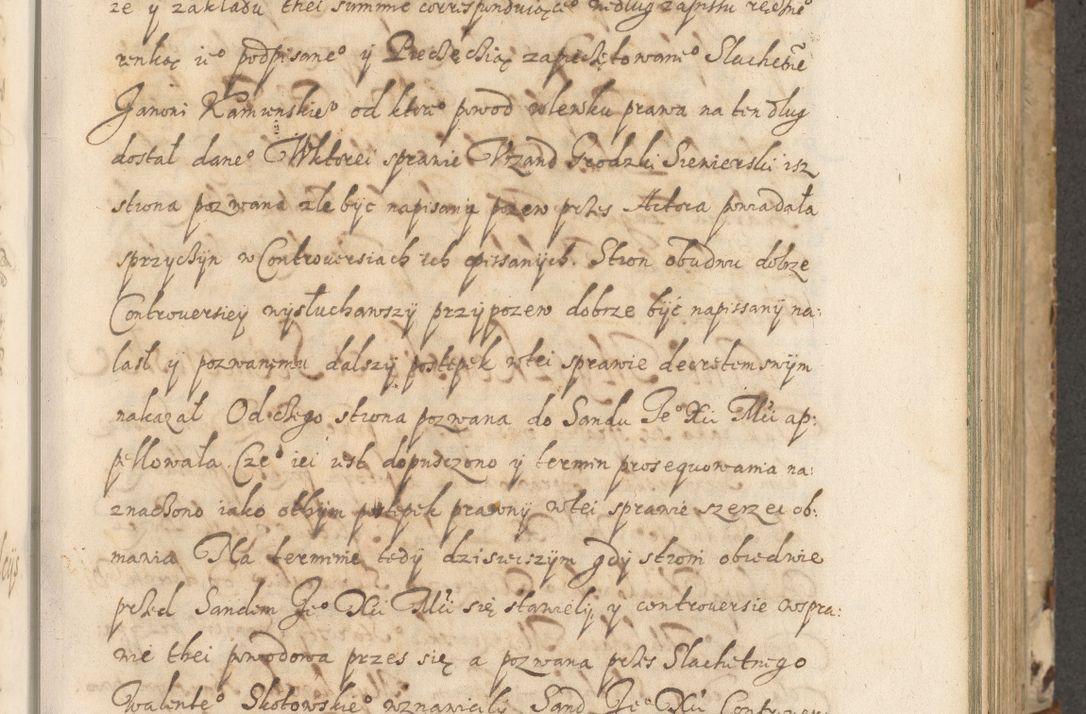 ze y zakładu thei summie correspunduiące° według zapisu ręcznie
renką ie° podpisane° y Pieczęckią zapieczętowanie° Slachetnie
Janoni Kamienskie° od ktore° powod wlewku prawa na ten dlug
dostał dane° Wktorei sprawie Vrzand Grodzki Siewierski isz
strona pozwana zle być napisany pozew przes Actora powiadała
sprzyczyn w Controuersiach ich opissanych. Stron obudwu dobrze
Controuersiey wysłuchawszy przy pozew dobrze być napissany na:
lasł y pozwanemu dalszy postępek wtei sprawie decretem swym
nakazał Od czego strona pozwana do Sandu Je° Xci Mci ap:
pellowała. Cze° iei ust dopusczono y termin prosequowania na:
znaczono iako o thym postępek prawny wtei sprawie szerzei ob:
mawia Na terminie tedy dzisieiszym gdy strony obiedwie
przed Sandem Je° Xci Mci się stawiely y controuersie wspra:
wie thei powodowa przes się a pozwana przes Slachetnego
Walente° Skotowskie° wznawieli Sand Je° Xci Controuer